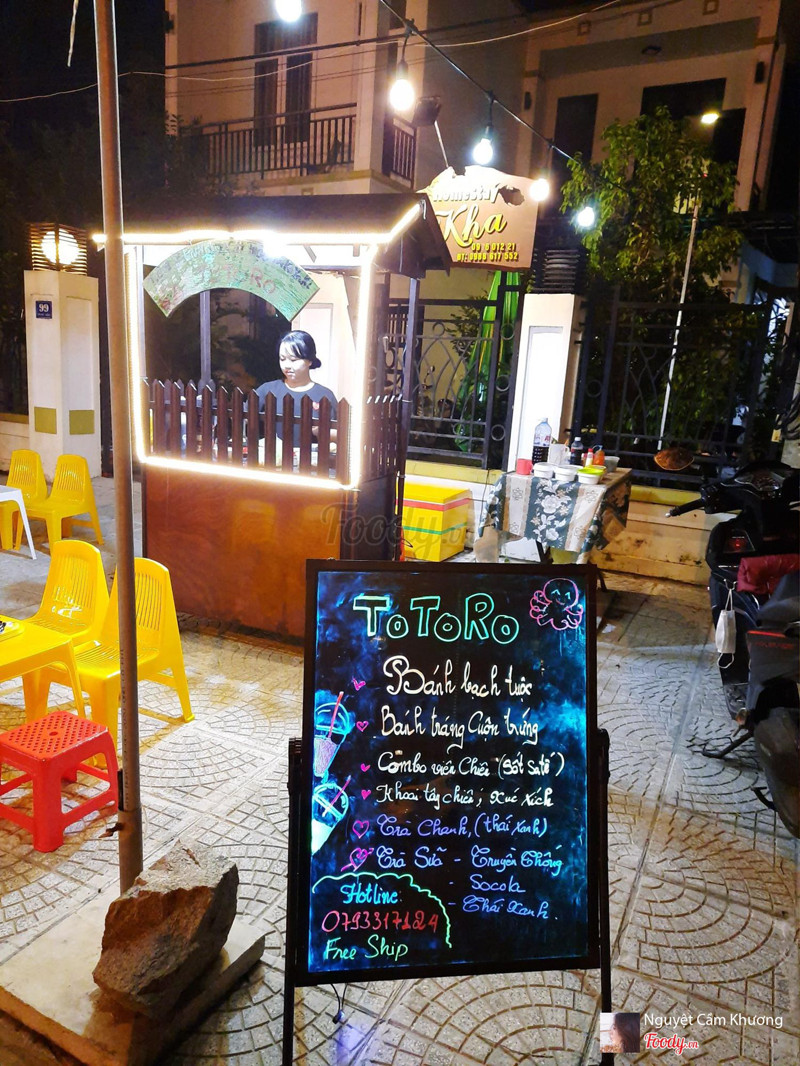 Homestay
Kha
ĐT: 0988 617 552
99
Foody.vn
ToToRo
Bánh bạch tuộc
Bánh tráng Cuộn trứng
Combo viên Chiên (Sốt Satế)
Khoai tây chiên, Xúc Xích
Trà Chanh, (thái xanh)
Trà Sữa - Truyền Thống
- Socola
- Thái Xanh.
Hotline:
0793317124
Free Ship
Nguyệt Cầm Khương
Foody.vn